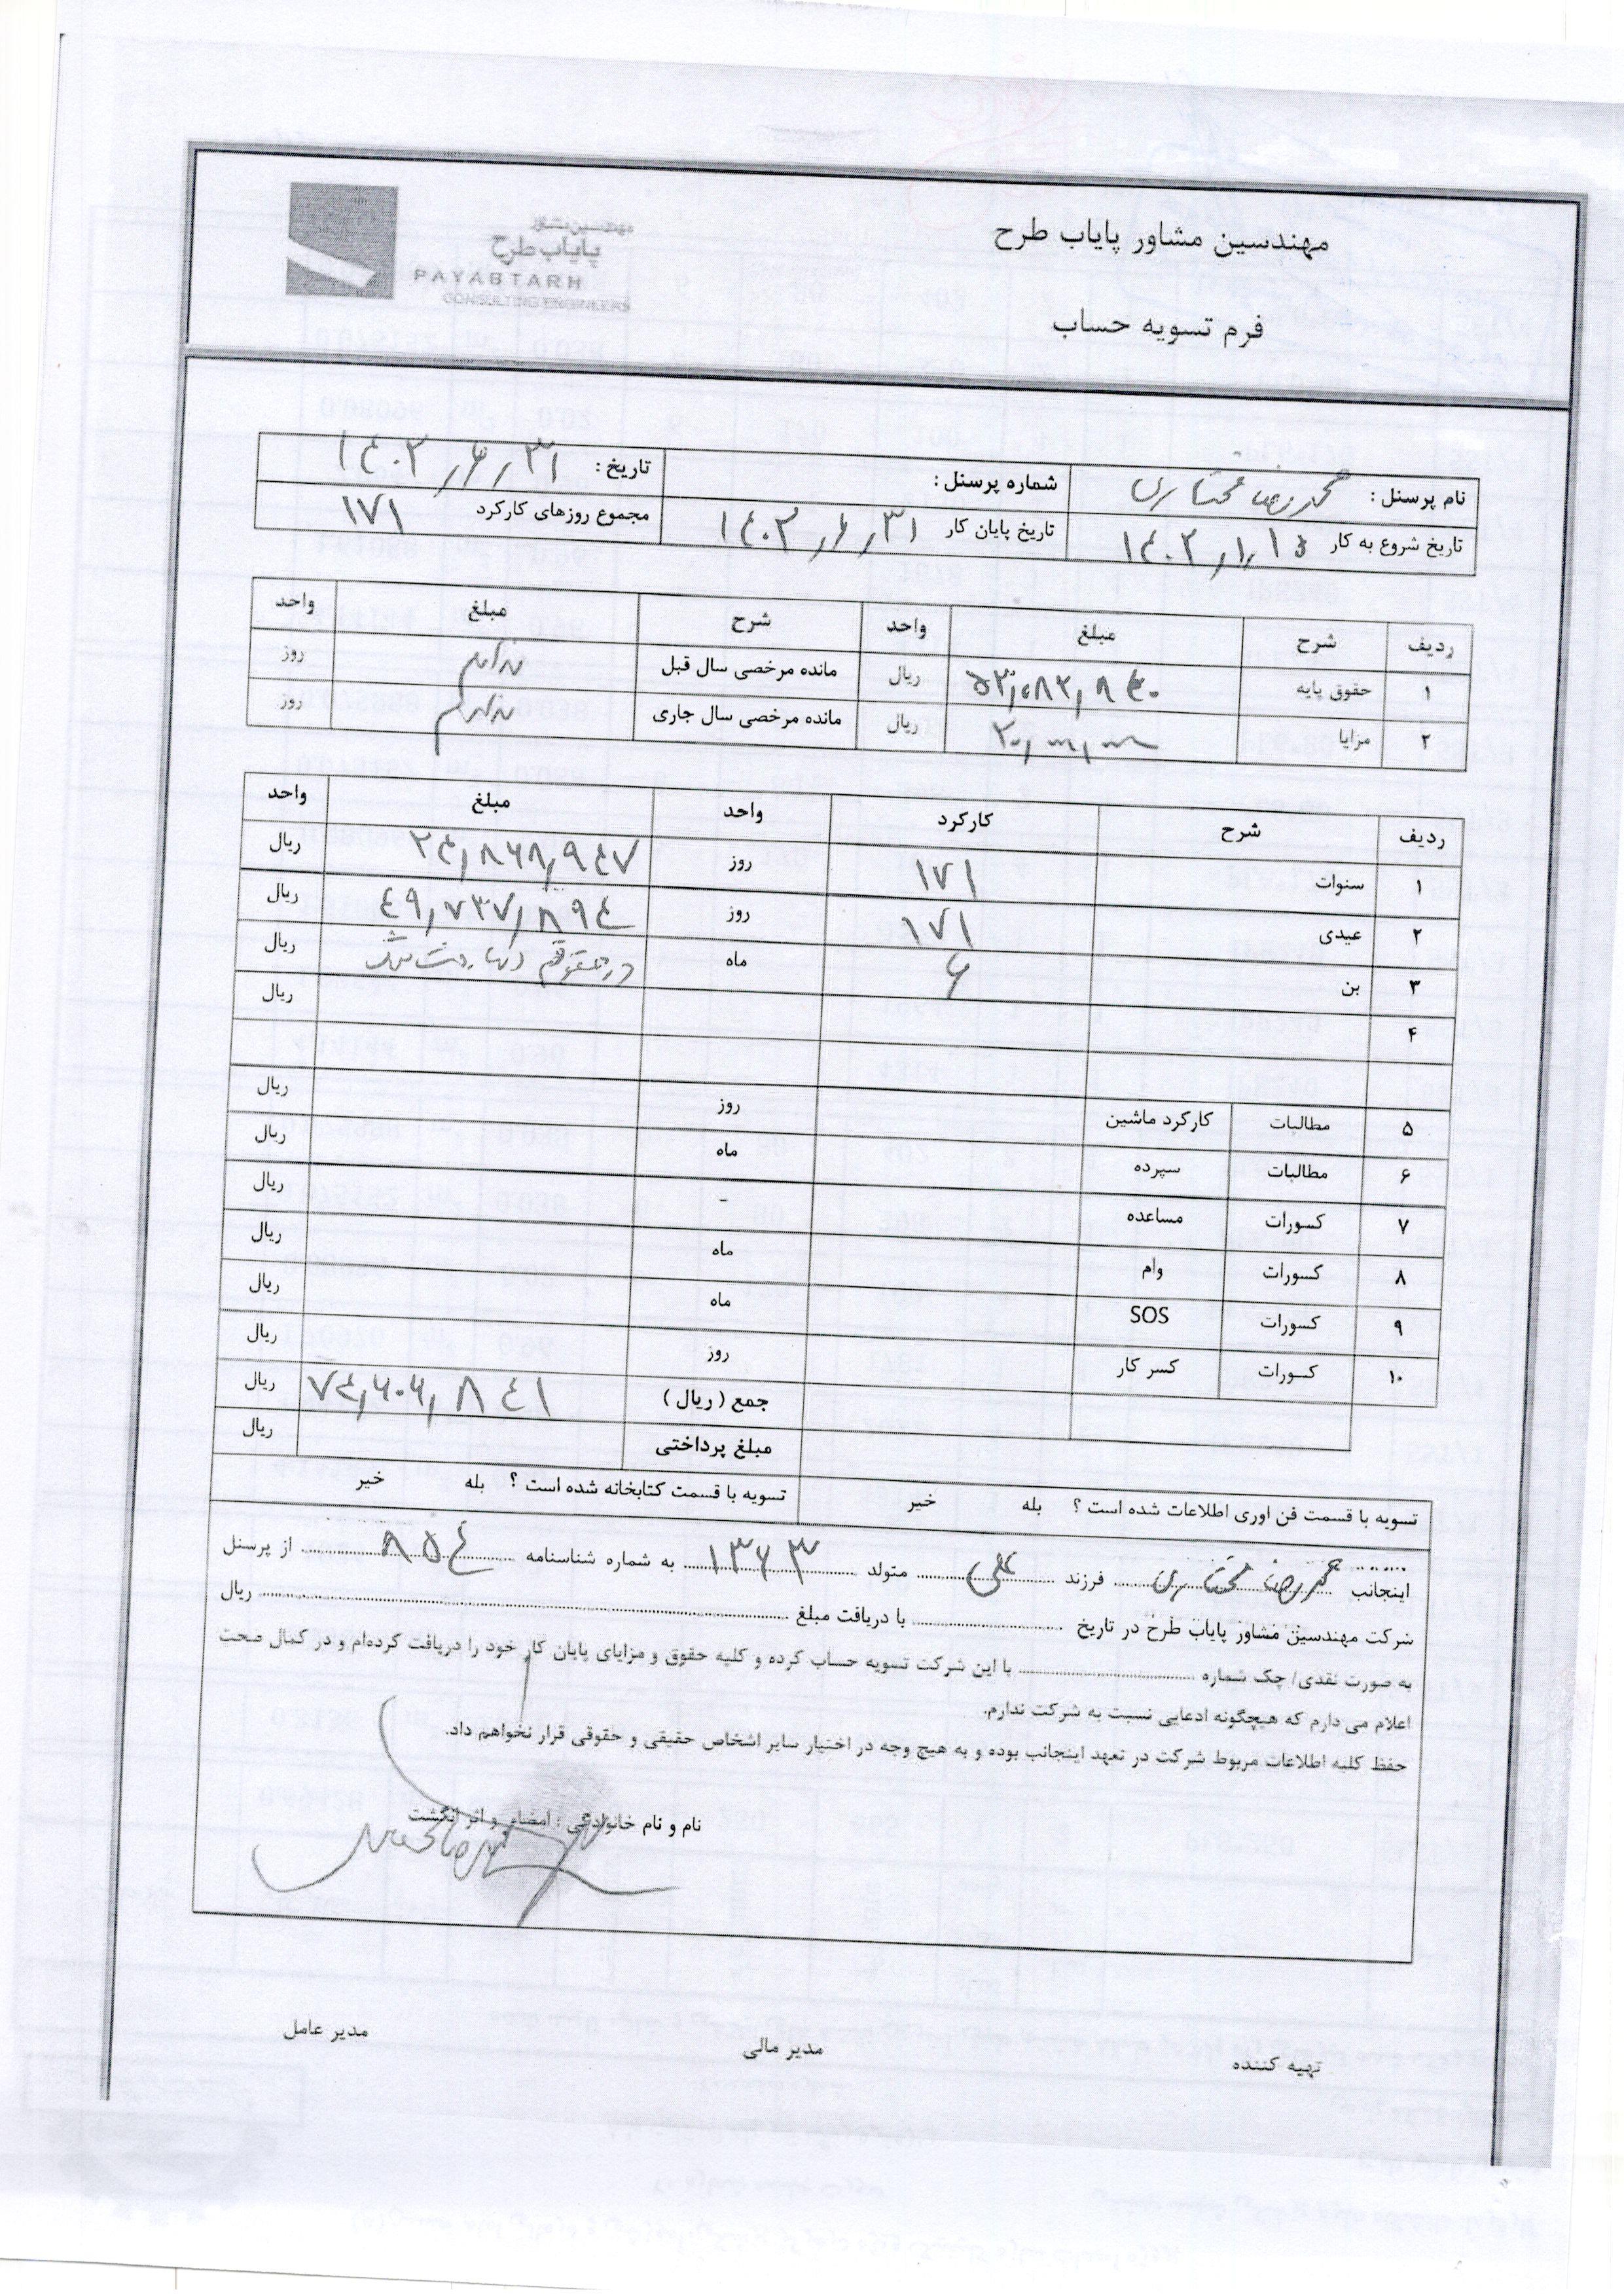 مهندسین مشاور پایاب طرح
مهندسین مشاور
پایاب طرح
PAYABTARH
CONSULTING ENGINEERS
فرم تسویه حساب
نام پرسنل : محمدرضا مختاری شماره پرسنل : تاریخ : ۱۴۰۳/۶/۳۱
تاریخ شروع به کار ۱۴۰۳/۱/۱۵ تاریخ پایان کار ۱۴۰۳/۶/۳۱ مجموع روزهای کارکرد ۱۷۱
ردیف شرح مبلغ واحد شرح مبلغ واحد
۱ حقوق پایه ۵۳,۰۸۳,۸۴۰ ریال مانده مرخصی سال قبل ندارم روز
۲ مزایا ریال مانده مرخصی سال جاری ندارم روز
ردیف شرح کارکرد واحد مبلغ واحد
۱ سنوات ۱۷۱ روز ۲۴,۸۶۸,۹۴۷ ریال
۲ عیدی ۱۷۱ روز ۴۹,۷۳۷,۸۹۴ ریال
۳ بن ۶ ماه در حقوقم پرداخت شد ریال
۴ ریال
۵ مطالبات کارکرد ماشین روز ریال
۶ مطالبات سپرده ماه ریال
۷ کسورات مساعده - ریال
۸ کسورات وام ماه ریال
۹ کسورات SOS ماه ریال
۱۰ کسورات کسر کار روز ریال
جمع ( ریال ) ۷۴,۶۰۶,۸۴۱ ریال
مبلغ پرداختی ریال
تسویه با قسمت فن اوری اطلاعات شده است ؟ بله خیر تسویه با قسمت کتابخانه شده است ؟ بله خیر
اینجانب محمدرضا مختاری فرزند علی متولد ۱۳۶۳ به شماره شناسنامه ۸۵۴ از پرسنل
شرکت مهندسین مشاور پایاب طرح در تاریخ با دریافت مبلغ ریال
به صورت نقدی/ چک شماره با این شرکت تسویه حساب کرده و کلیه حقوق و مزایای پایان کار خود را دریافت کرده‌ام و در کمال صحت
اعلام می دارم که هیچگونه ادعایی نسبت به شرکت ندارم.
حفظ کلیه اطلاعات مربوط شرکت در تعهد اینجانب بوده و به هیچ وجه در اختیار سایر اشخاص حقیقی و حقوقی قرار نخواهم داد.
نام و نام خانوادگی : امضاء و اثر انگشت
تهیه کننده مدیر مالی مدیر عامل